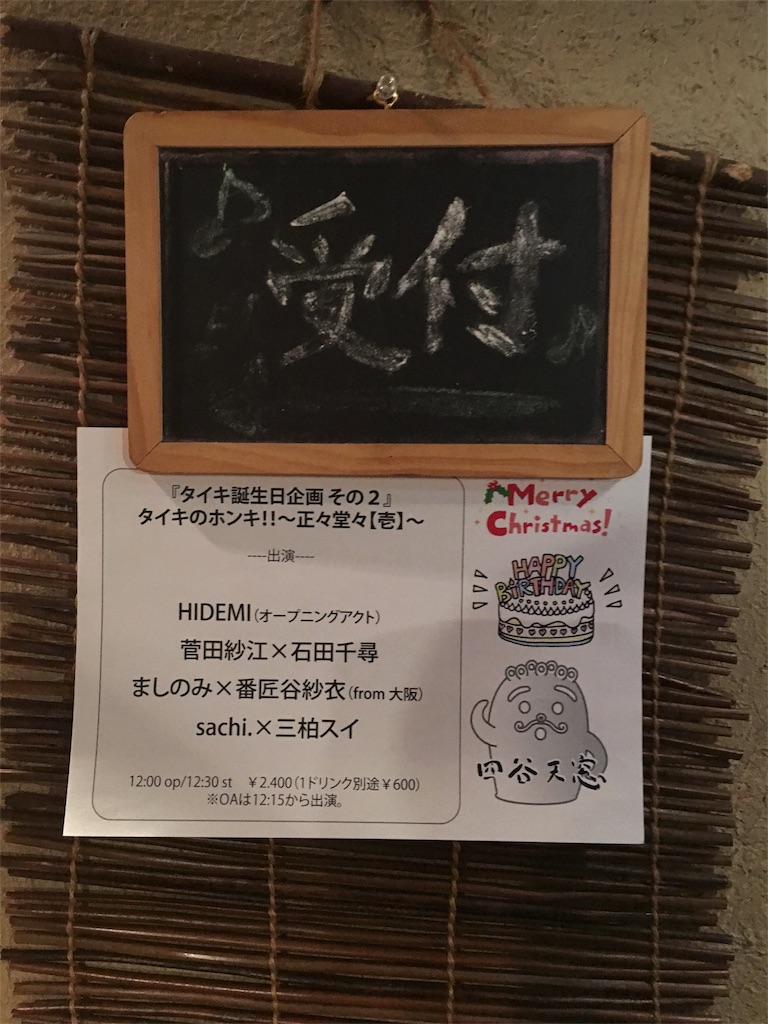 受付
『タイキ誕生日企画 その２』
タイキのホンキ!!～正々堂々【壱】～
----出演----
HIDEMI（オープニングアクト）
菅田紗江×石田千尋
ましのみ×番匠谷紗衣（from 大阪）
sachi.×三柏スイ
12:00 op/12:30 st　￥2.400（1ドリンク別途￥600）
※OAは12:15から出演。
Merry
Christmas!
HAPPY
BIRTHDAY
四谷天窓